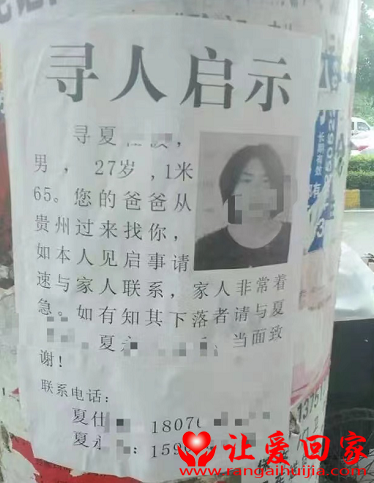 寻人启示
寻夏
男，27岁，1米
65。您的爸爸从
贵州过来找你，
如本人见启事请
速与家人联系，家人非常着
急。如有知其下落者请与夏
夏 当面致
谢！
联系电话：
夏仕 18070
夏永 ：159
长期有效
让爱回家
www.rangaihuijia.com